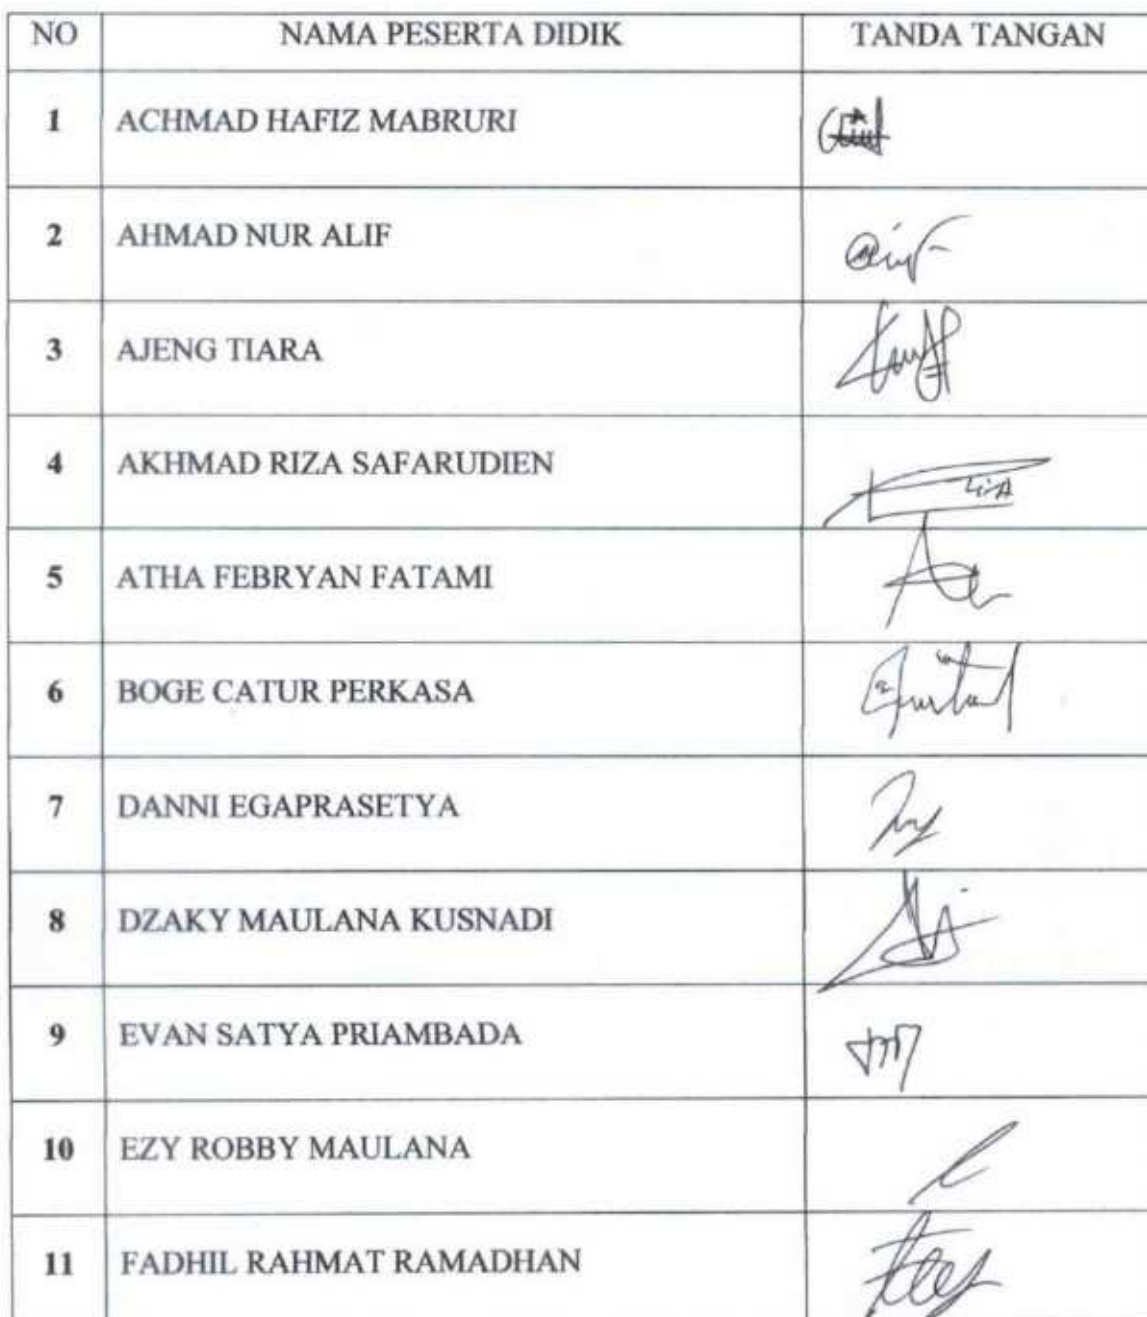 NO NAMA PESERTA DIDIK TANDA TANGAN
1 ACHMAD HAFIZ MABRURI
2 AHMAD NUR ALIF
3 AJENG TIARA
4 AKHMAD RIZA SAFARUDIEN
5 ATHA FEBRYAN FATAMI
6 BOGE CATUR PERKASA
7 DANNI EGAPRASETYA
8 DZAKY MAULANA KUSNADI
9 EVAN SATYA PRIAMBADA
10 EZY ROBBY MAULANA
11 FADHIL RAHMAT RAMADHAN